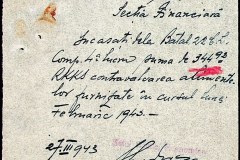 Secția Financiară
Încasat dela Batal 22 R.L.
Comp. 4ª lucru suma de 34493
RKKS contravaloarea alimente
lor furnizate în cursul lunei
Februarie 1943.—
27.III 943